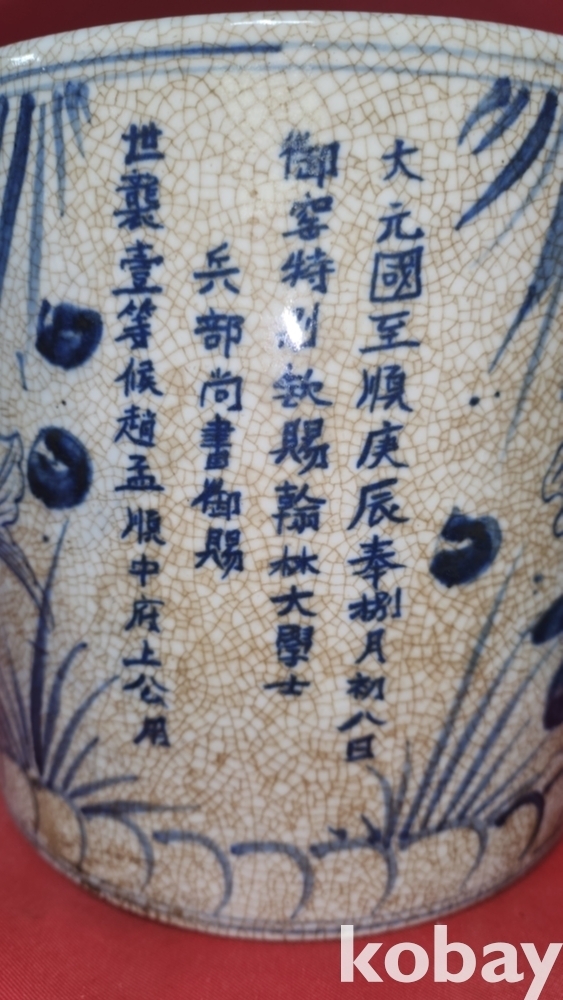 大元國至順庚辰奉捌月初八日
御窑特別欽賜翰林大學士
兵部尚書御賜
世襲壹等候趙孟順中府上公用
kobay